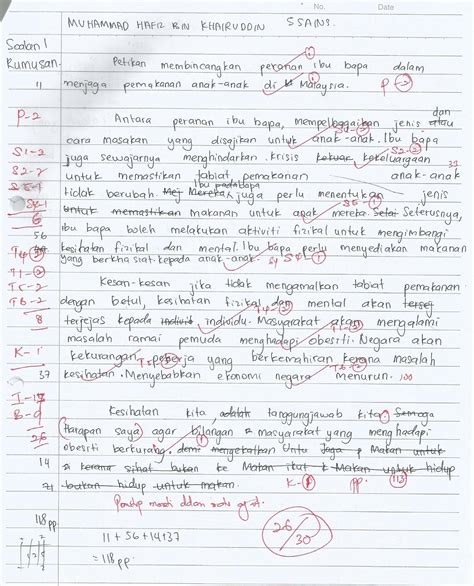 No.
Date
MUHAMMAD HAFIZ BIN KHAIRUDDIN 5 SAINS
Soalan 1
Rumusan
Petikan membincangkan peranan ibu bapa dalam
11 menjaga pemakanan anak-anak di Malaysia. P-2
P-2 Antara peranan ibu bapa, mempelbagaikan jenis dan atau
S1-2 cara masakan yang disajikan untuk anak-anak. Ibu bapa
S2-2 juga sewajarnya menghindarkan krisis kekeluargaan
untuk memastikan tabiat pemakanan anak-anak
tidak berubah. Mereka ibu bapa juga perlu menentukan jenis
6 untuk memastikan makanan untuk anak mereka. Seterusnya,
56 ibu bapa boleh melakukan aktiviti fizikal untuk mengimbangi
kesihatan fizikal dan mental. Ibu bapa perlu menyediakan makanan
yang berkhasiat kepada anak-anak.
T5-2 Kesan-kesan jika tidak mengamalkan tabiat pemakanan
T6-2 dengan betul, kesihatan fizikal dan mental akan
8 terjejas kepada individu. Masyarakat akan mengalami
masalah ramai pemuda menghadapi obesiti. Negara akan
K-1 kekurangan pekerja yang berkemahiran kerana masalah
37 kesihatan. Menyebabkan ekonomi negara menurun. 100
Kesihatan kita, adalah tanggungjawab kita. Semoga
harapan saya agar bilangan masyarakat yang menghadapi
26 obesiti berkurang. Makan untuk
14 hidup
71 bukan hidup untuk makan. K- pp. 113
118pp 11 + 56 + 14 + 37
= 118 pp
26/30